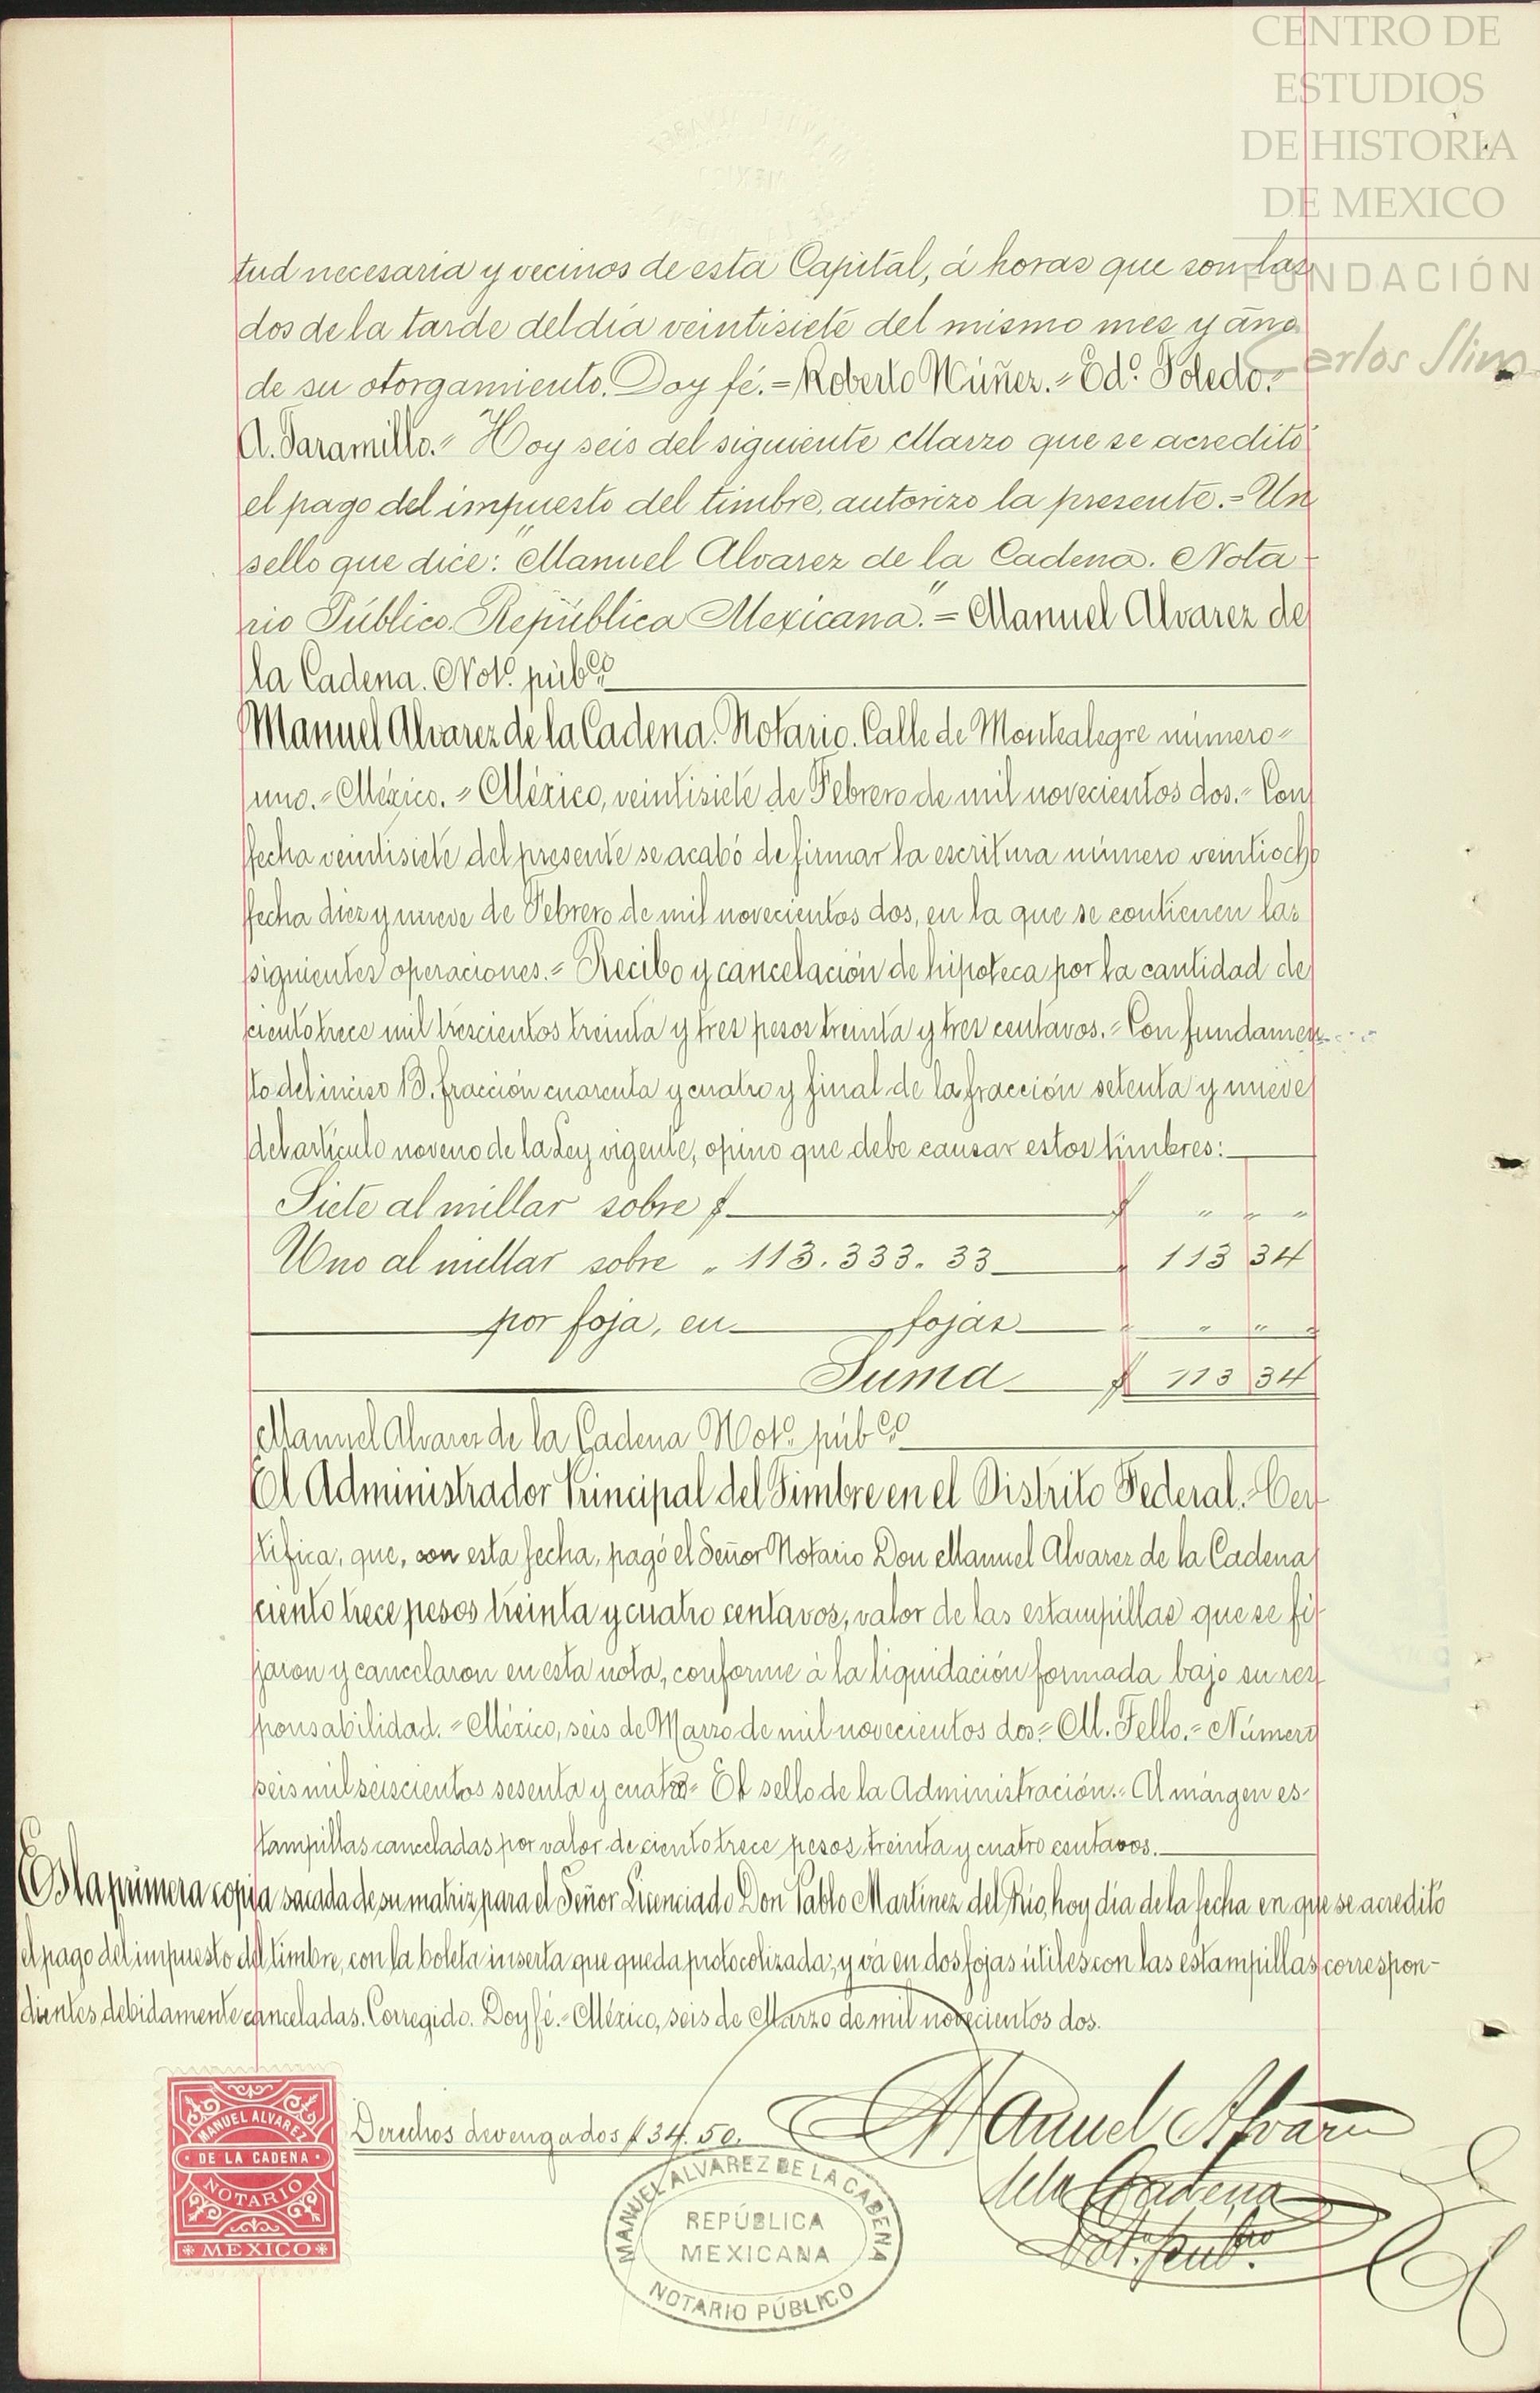 CENTRO DE
ESTUDIOS
DE HISTORIA
DE MEXICO
FUNDACIÓN
Carlos Slim
tud necesaria y vecinos de esta Capital, á horas que son las
dos de la tarde del dia veintisiete del mismo mes y año
de su otorgamiento. Doy fé.=Roberto Núñez.=Edo. Toledo.=
A. Jaramillo.= Hoy seis del siguiente Marzo que se acreditó
el pago del impuesto del timbre, autorizo la presente.=Un
sello que dice: "Manuel Alvarez de la Cadena. Nota-
rio Público. República Mexicana."=Manuel Alvarez de
la Cadena. Noto. púbco.
Manuel Alvarez de la Cadena. Notario. Calle de Montealegre número=
uno.=México.=México, veintisiete de Febrero de mil novecientos dos.=Con
fecha veintisiete del presente se acabó de firmar la escritura número veintiocho
fecha diez y nueve de Febrero de mil novecientos dos, en la que se contienen las
siguientes operaciones.=Recibo y cancelación de hipoteca por la cantidad de
ciento trece mil trescientos treinta y tres pesos treinta y tres centavos.=Con fundamen
to del inciso B. fracción cuarenta y cuatro y final de la fracción setenta y nueve
del artículo noveno de la Ley vigente, opino que debe causar estos timbres:
Siete al millar sobre $ $ " " "
Uno al millar sobre " 113.333.33 " 113 34
por foja, en fojas " " " "
Suma $ 113 34
Manuel Alvarez de la Cadena Noto. púbco.
El Administrador Principal del Timbre en el Distrito Federal.=Cer-
tifica, que, con esta fecha, pagó el Señor Notario Don Manuel Alvarez de la Cadena
ciento trece pesos treinta y cuatro centavos, valor de las estampillas que se fi-
jaron y cancelaron en esta nota, conforme á la liquidación formada bajo su res-
ponsabilidad.=México, seis de Marzo de mil novecientos dos=M. Tello.=Número
seis mil seiscientos sesenta y cuatro=El sello de la Administración.=Al márgen es-
tampillas canceladas por valor de ciento trece pesos treinta y cuatro centavos.
Es la primera copia sacada de su matriz para el Señor Licenciado Don Pablo Martínez del Río, hoy día de la fecha en que se acreditó
el pago del impuesto del timbre, con la boleta inserta que queda protocolizada; y vá en dos fojas útiles con las estampillas correspon-
dientes debidamente canceladas. Corregido. Doy fé.=México, seis de Marzo de mil novecientos dos.
Manuel Alvarez
de la Cadena
Not. pubco.
Derechos devengados $34.50.
MANUEL ALVAREZ
DE LA CADENA
NOTARIO
MEXICO
MANUEL ALVAREZ DE LA CADENA
REPÚBLICA
MEXICANA
NOTARIO PÚBLICO